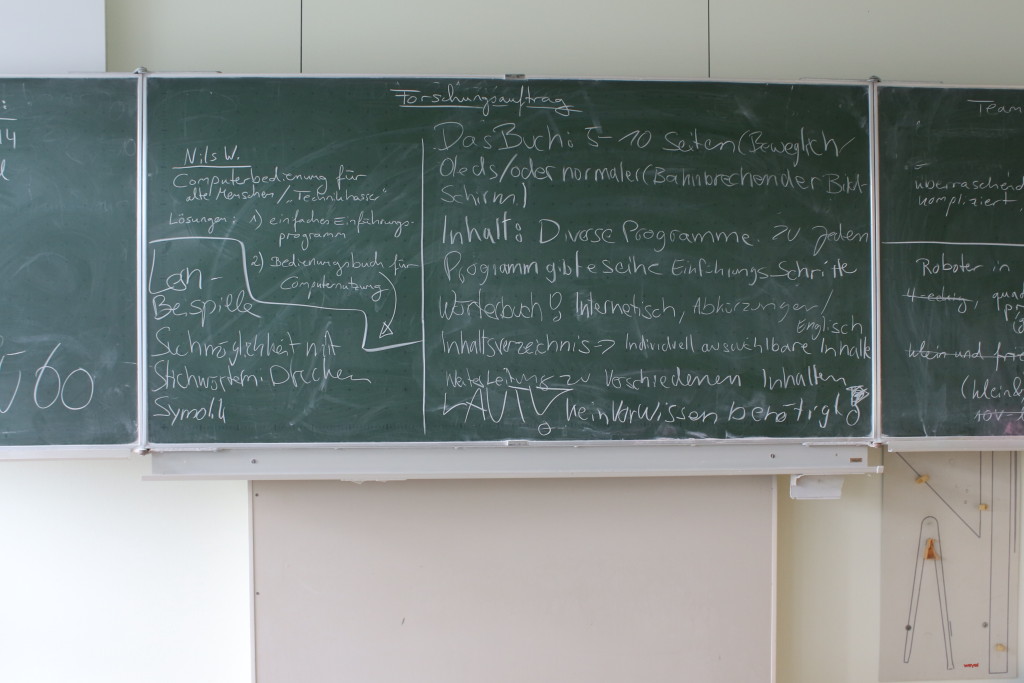 Forschungsauftrag
Nils W.
Computerbedienung für
alte Menschen / "Technikhasser"
Lösungen: 1) einfaches Einführungs-
programm
2) Bedienungsbuch für
Computernutzung
Beispielle
Suchmöglichkeit mit
Stichwörtern. Drucken
Das Buch: 5-10 Seiten (Beweglich/
Oleds/oder normaler (Bahnbrechender Bild-
Schirm)
Inhalt: Diverse Programme. Zu jedem
Programm gibt es eine Einführungs-Schritte
Wörterbuch Internetisch, Abkürzungen/
Englisch
Inhaltsverzeichnis -> Individuell auswählbare Inhalte
Weiterleitung zu Verschiedenen Inhalten
kein Vorwissen benötigt
14
60
Team
überraschend
kompliziert
Roboter in
4-eckig,
klein und
(klein
weyel